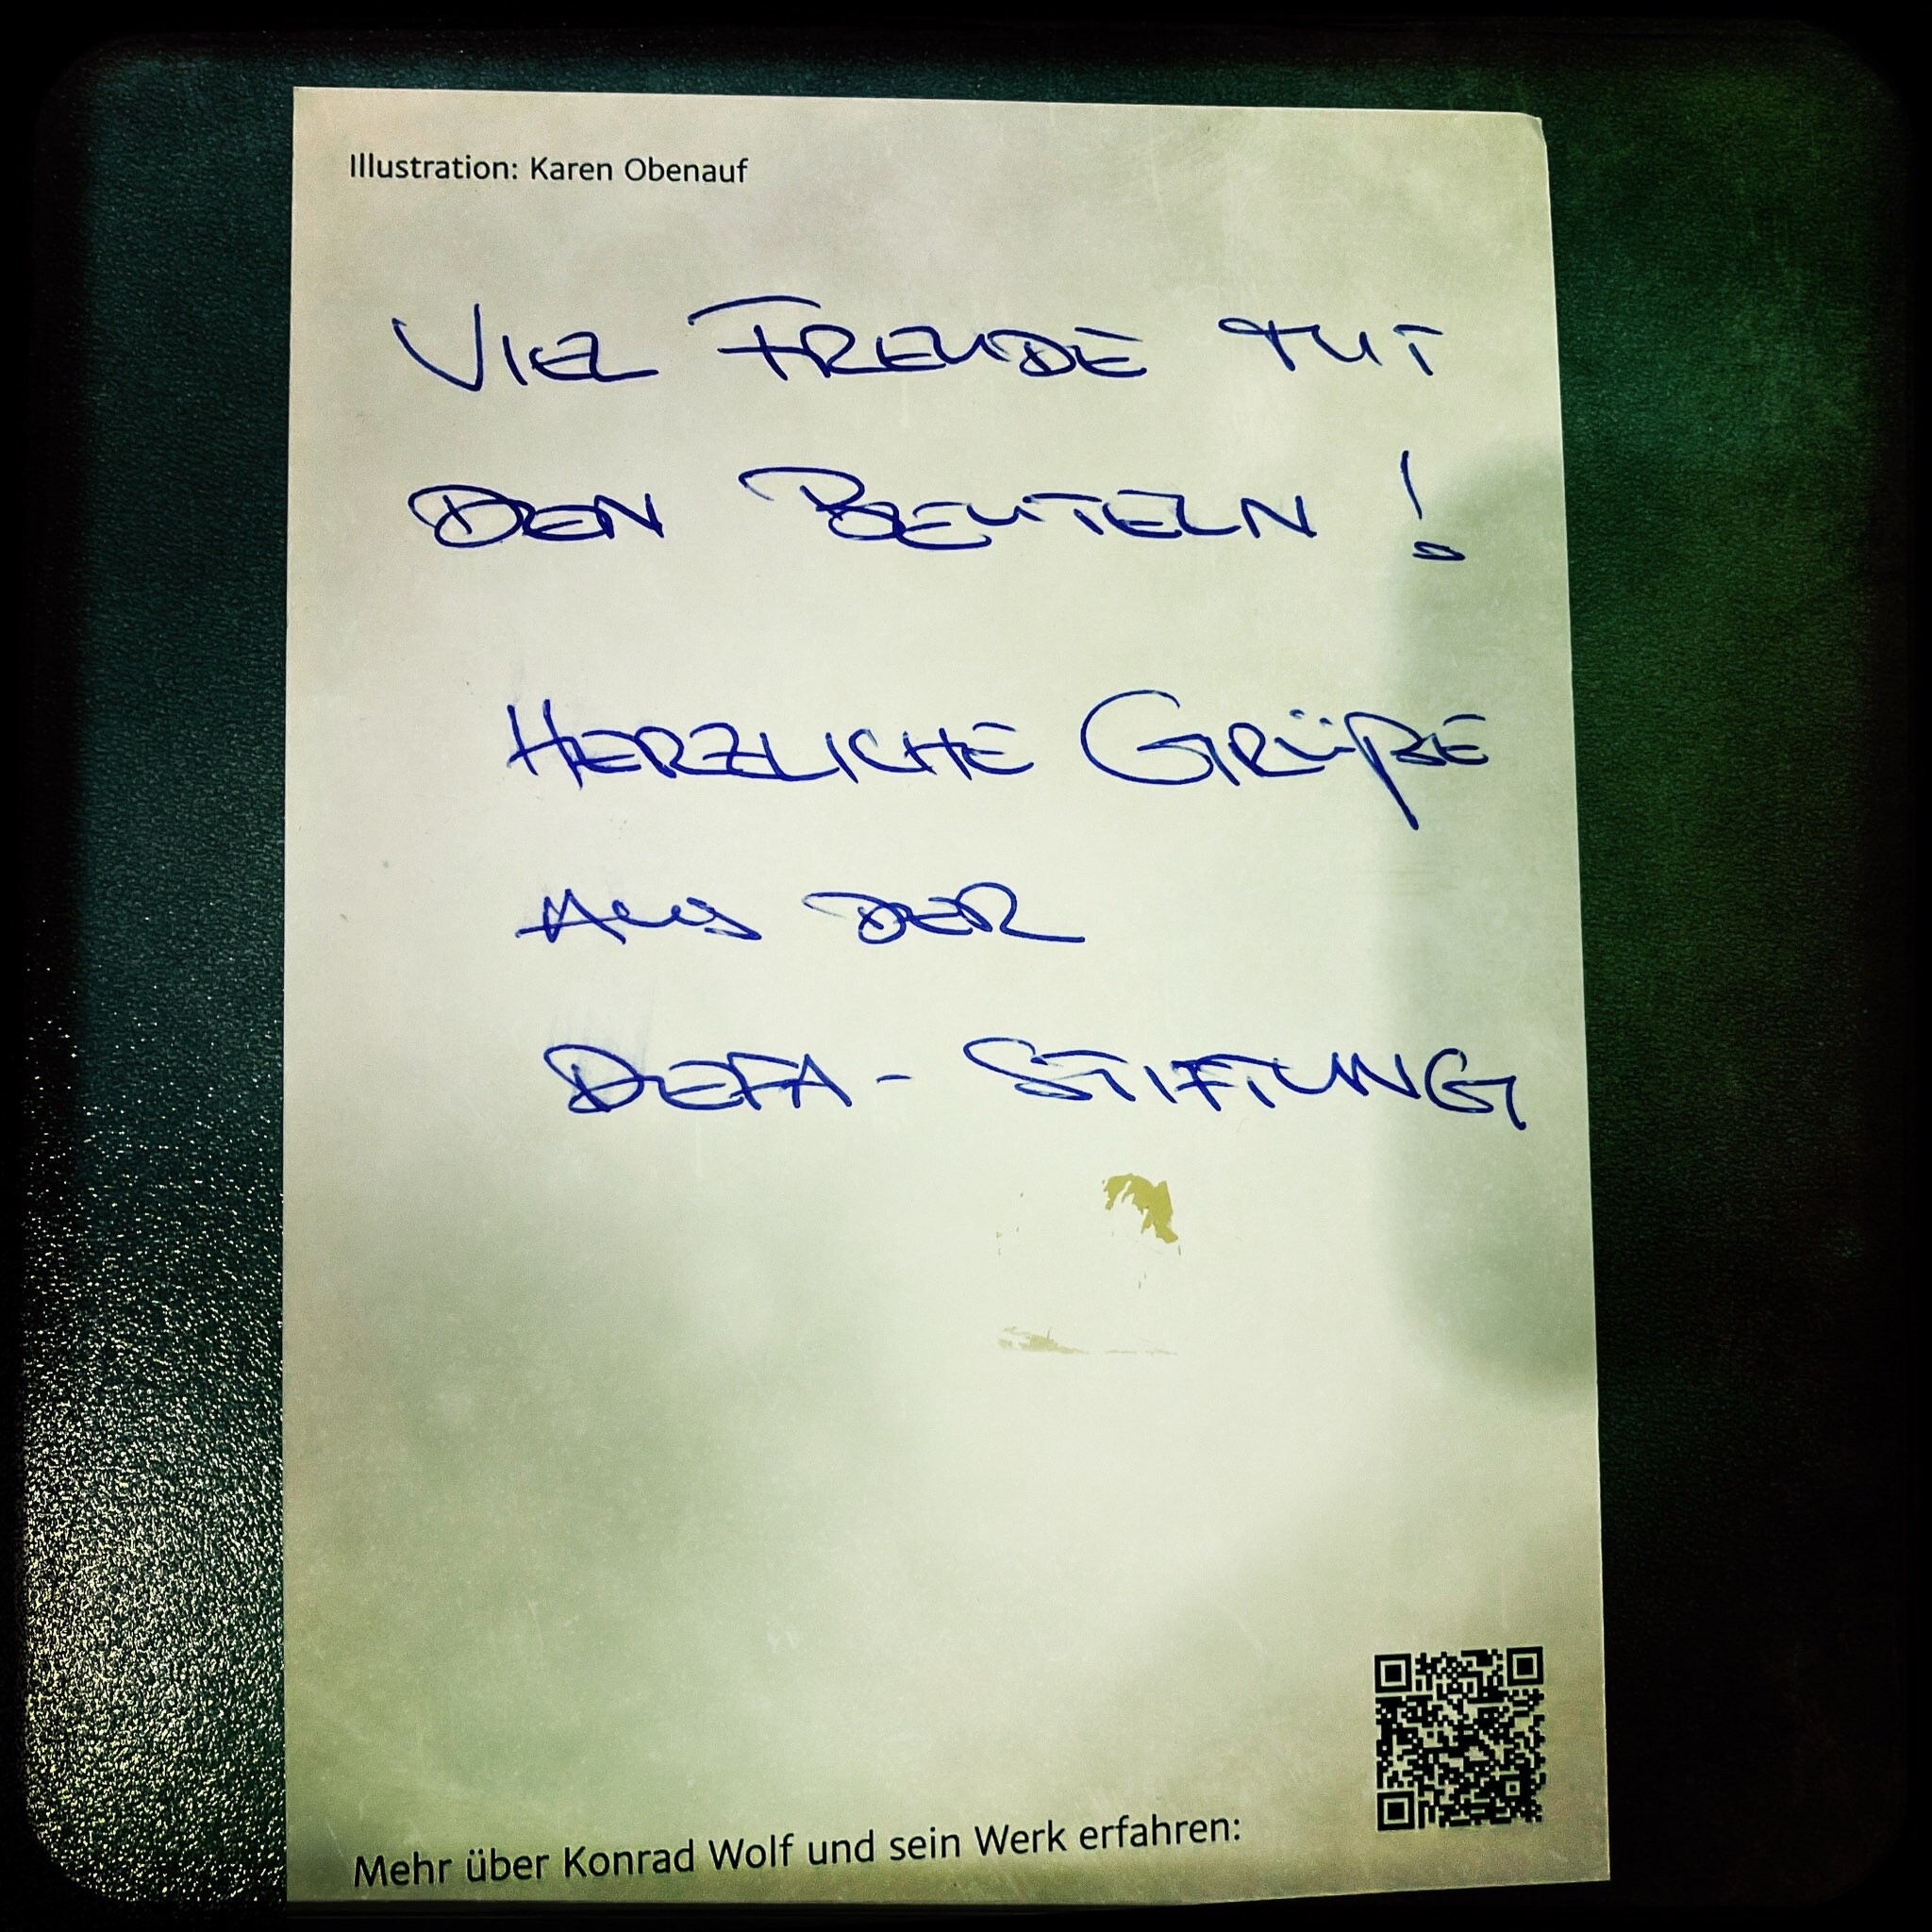 Illustration: Karen Obenauf
VIEL FREUDE MIT
DEN BEUTELN!
HERZLICHE GRÜßE
AUS DER
DEFA-STIFTUNG
Mehr über Konrad Wolf und sein Werk erfahren: